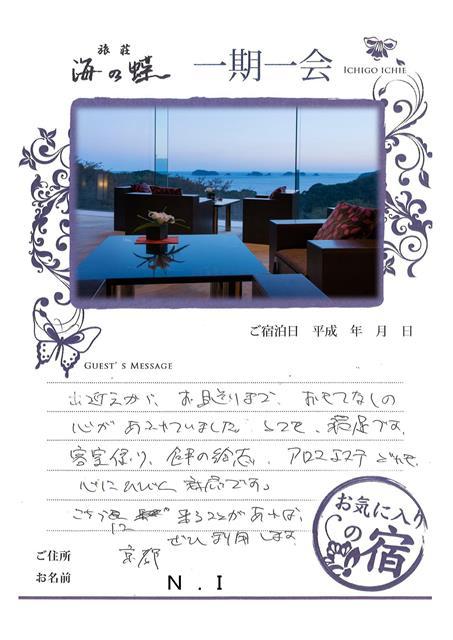 旅荘
海の蝶
一期一会
ICHIGO ICHIE
ご宿泊日 平成 年 月 日
GUEST'S MESSAGE
出迎えから、お見送りまで、おもてなしの
心があふれていました とても、満足です。
客室係り、食事の給志、アロマエステ どれも、
心にひびく 対応です。
こちらに 来ることがあれば、
ぜひ利用します
ご住所 京都
お名前 N.I
お気に入り
の宿